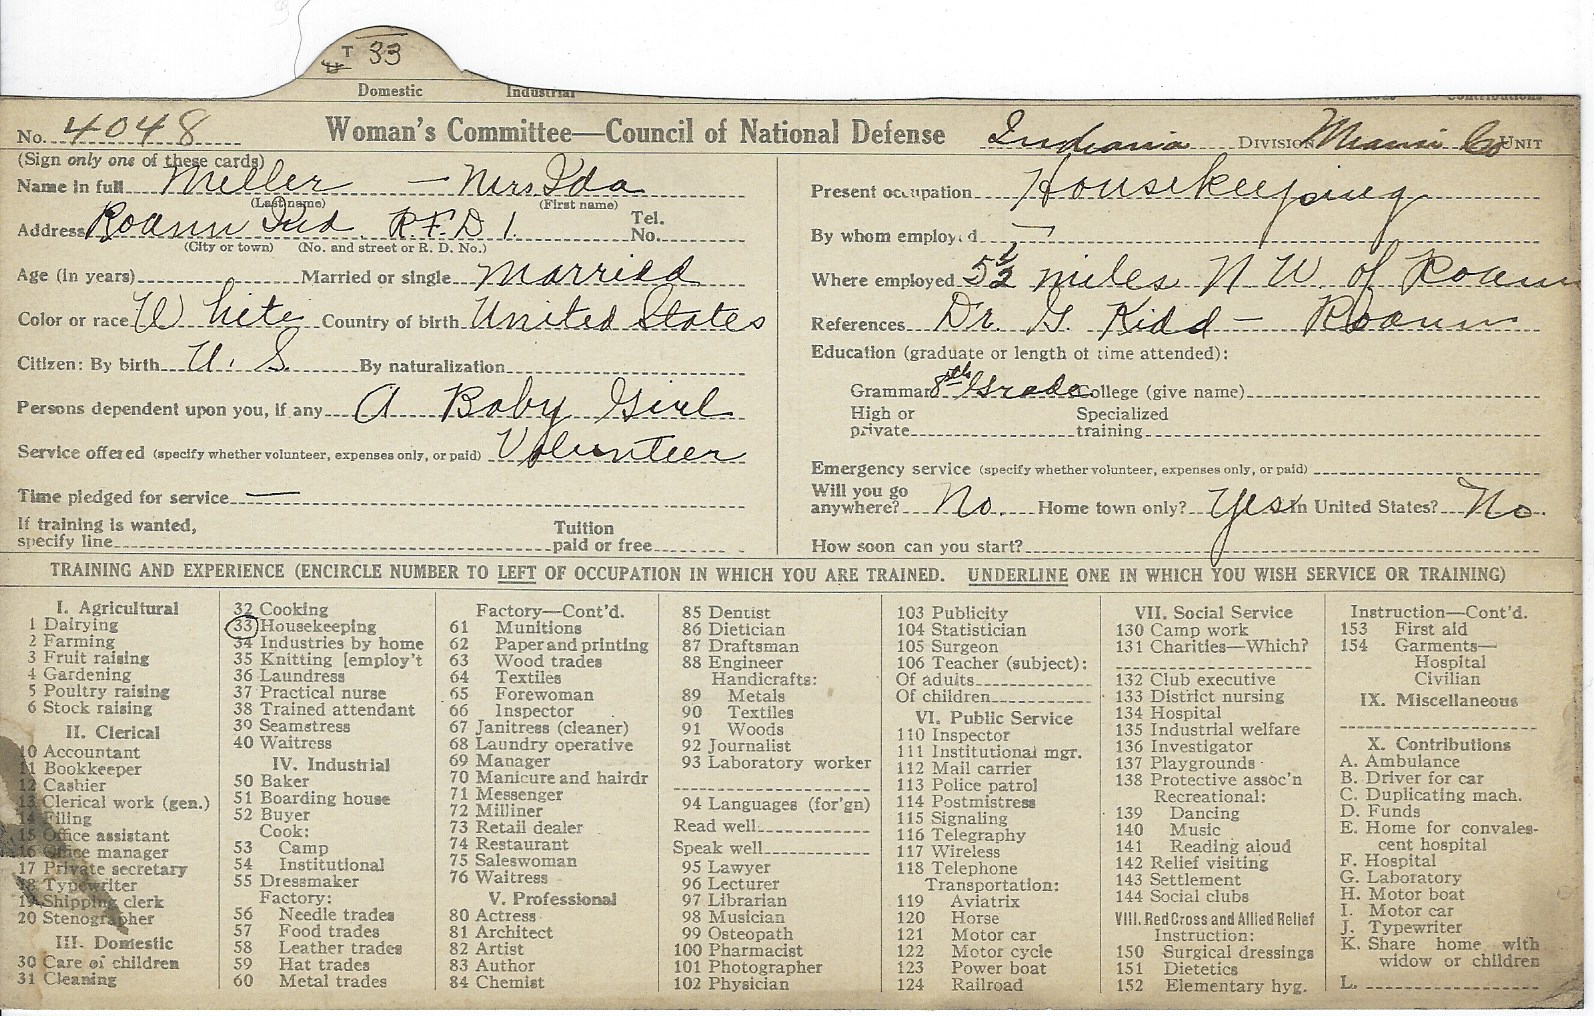 T 33
Domestic Industrial
No. 4048 Woman's Committee—Council of National Defense Indiana DIVISION Miami Co UNIT
(Sign only one of these cards)
Name in full Miller — Mrs Ida
(Last name) (First name)
Address Roann Ind. R.F.D 1 Tel. No.
(City or town) (No. and street or R. D. No.)
Age (in years) Married or single Married
Color or race White Country of birth United States
Citizen: By birth U. S. By naturalization
Persons dependent upon you, if any A Baby Girl
Service offered (specify whether volunteer, expenses only, or paid) Volunteer
Time pledged for service —
If training is wanted, Tuition
specify line paid or free
Present occupation Housekeeping
By whom employed —
Where employed 5 1/2 miles N W. of Roann
References Dr. G. Kidd — Roann
Education (graduate or length of time attended):
Grammar 8th Grade College (give name)
High or Specialized
private training
Emergency service (specify whether volunteer, expenses only, or paid)
Will you go
anywhere? No. Home town only? Yes In United States? No.
How soon can you start?
TRAINING AND EXPERIENCE (ENCIRCLE NUMBER TO LEFT OF OCCUPATION IN WHICH YOU ARE TRAINED. UNDERLINE ONE IN WHICH YOU WISH SERVICE OR TRAINING)
I. Agricultural
1 Dairying
2 Farming
3 Fruit raising
4 Gardening
5 Poultry raising
6 Stock raising
II. Clerical
10 Accountant
11 Bookkeeper
12 Cashier
13 Clerical work (gen.)
14 Filing
15 Office assistant
16 Office manager
17 Private secretary
18 Typewriter
19 Shipping clerk
20 Stenographer
III. Domestic
30 Care of children
31 Cleaning
32 Cooking
33 Housekeeping
34 Industries by home
35 Knitting [employ't
36 Laundress
37 Practical nurse
38 Trained attendant
39 Seamstress
40 Waitress
IV. Industrial
50 Baker
51 Boarding house
52 Buyer
Cook:
53 Camp
54 Institutional
55 Dressmaker
Factory:
56 Needle trades
57 Food trades
58 Leather trades
59 Hat trades
60 Metal trades
Factory—Cont'd.
61 Munitions
62 Paper and printing
63 Wood trades
64 Textiles
65 Forewoman
66 Inspector
67 Janitress (cleaner)
68 Laundry operative
69 Manager
70 Manicure and hairdr
71 Messenger
72 Milliner
73 Retail dealer
74 Restaurant
75 Saleswoman
76 Waitress
V. Professional
80 Actress
81 Architect
82 Artist
83 Author
84 Chemist
85 Dentist
86 Dietician
87 Draftsman
88 Engineer
Handicrafts:
89 Metals
90 Textiles
91 Woods
92 Journalist
93 Laboratory worker
94 Languages (for'gn)
Read well
Speak well
95 Lawyer
96 Lecturer
97 Librarian
98 Musician
99 Osteopath
100 Pharmacist
101 Photographer
102 Physician
103 Publicity
104 Statistician
105 Surgeon
106 Teacher (subject):
Of adults
Of children
VI. Public Service
110 Inspector
111 Institutional mgr.
112 Mail carrier
113 Police patrol
114 Postmistress
115 Signaling
116 Telegraphy
117 Wireless
118 Telephone
Transportation:
119 Aviatrix
120 Horse
121 Motor car
122 Motor cycle
123 Power boat
124 Railroad
VII. Social Service
130 Camp work
131 Charities—Which?
132 Club executive
133 District nursing
134 Hospital
135 Industrial welfare
136 Investigator
137 Playgrounds
138 Protective assoc'n
Recreational:
139 Dancing
140 Music
141 Reading aloud
142 Relief visiting
143 Settlement
144 Social clubs
VIII. Red Cross and Allied Relief
Instruction:
150 Surgical dressings
151 Dietetics
152 Elementary hyg.
Instruction—Cont'd.
153 First aid
154 Garments—
Hospital
Civilian
IX. Miscellaneous
X. Contributions
A. Ambulance
B. Driver for car
C. Duplicating mach.
D. Funds
E. Home for convales-
cent hospital
F. Hospital
G. Laboratory
H. Motor boat
I. Motor car
J. Typewriter
K. Share home with
widow or children
L.